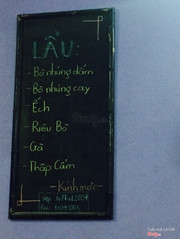 LẨU:
- Bò nhúng dấm
- Bò nhúng cay
- Ếch
- Riêu Bò
- Gà
- Thập Cẩm
- Kính mời -